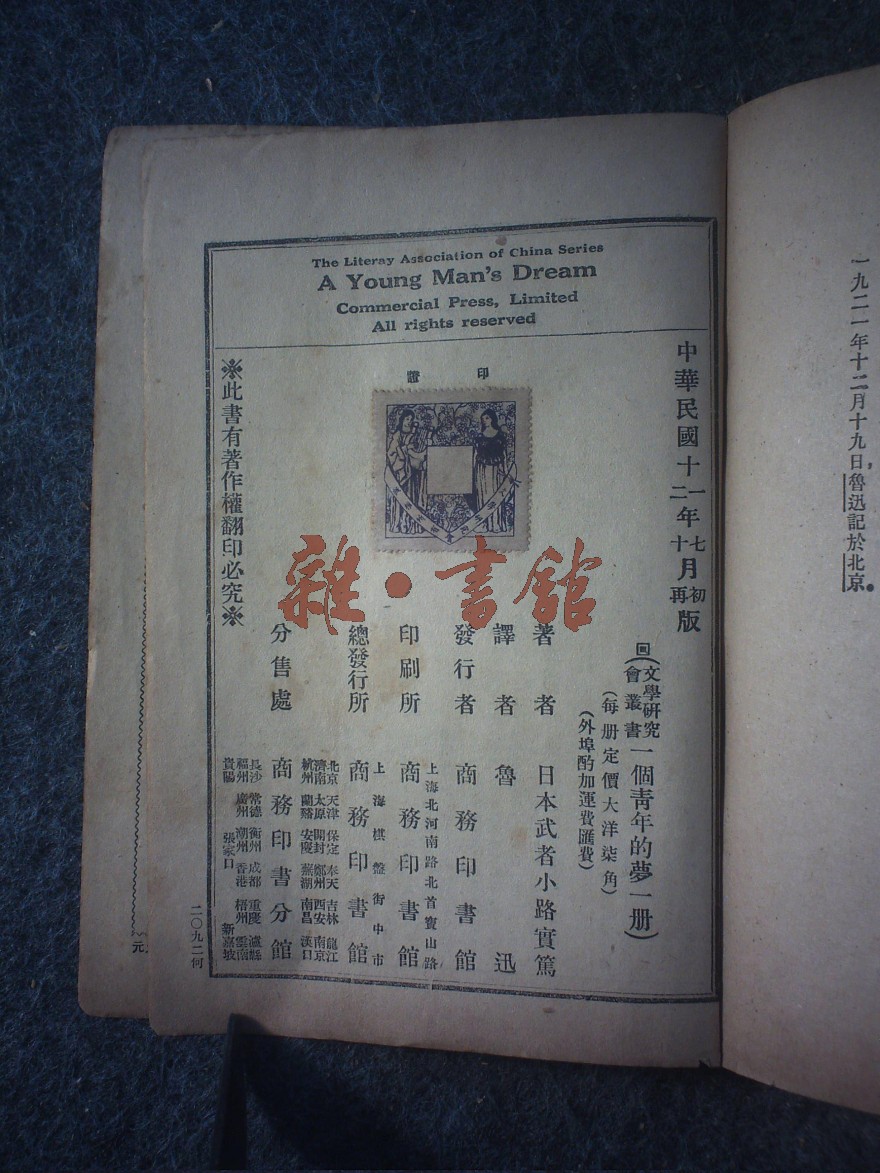 一九二一年十二月十九日，魯迅記於北京。
The Literay Association of China Series
A Young Man's Dream
Commercial Press, Limited
All rights reserved
中華民國十一年七月初版
二年十月再版
印證
回(文學研究會叢書一個靑年的夢一册)
(每册定價大洋柒角)
(外埠酌加運費匯費)
著者 日本武者小路實篤
譯者 魯迅
發行者 商務印書館
上海北河南路北首寶山路
印刷所 商務印書館
上海棋盤街中市
總發行所 商務印書館
北京 天津 保定 奉天 吉林 龍江
濟南 太原 開封 鄭州 西安 南京
杭州 蘭谿 安慶 蕪湖 南昌 漢口
分售處 商務印書分館
長沙 常德 衡州 成都 重慶 瀘縣
福州 廣州 潮州 香港 梧州 雲南
貴陽 張家口 新嘉坡
※此書有著作權翻印必究※
二〇九二何
元
雜·書館